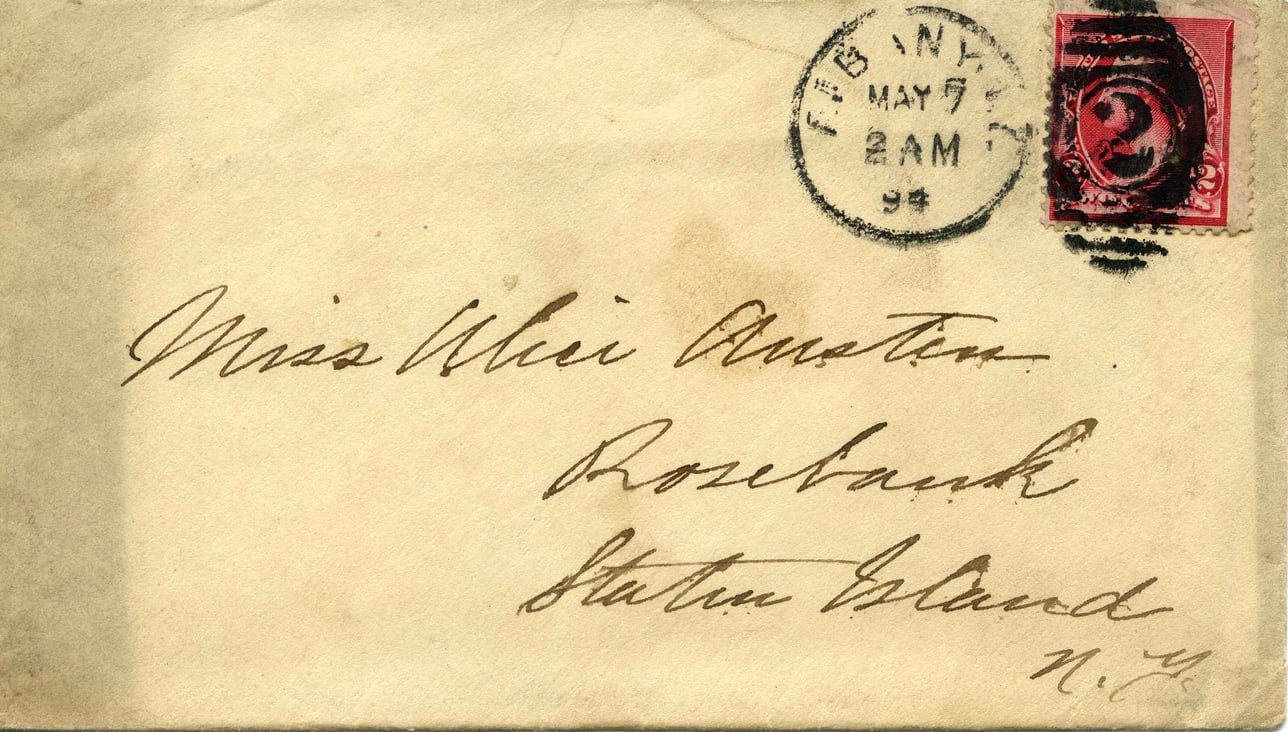 ALBANY N.Y.
MAY 7
2 AM
94
2
POSTAGE
2
Miss Alice Austen
Rosebank
Staten Island
N. Y.